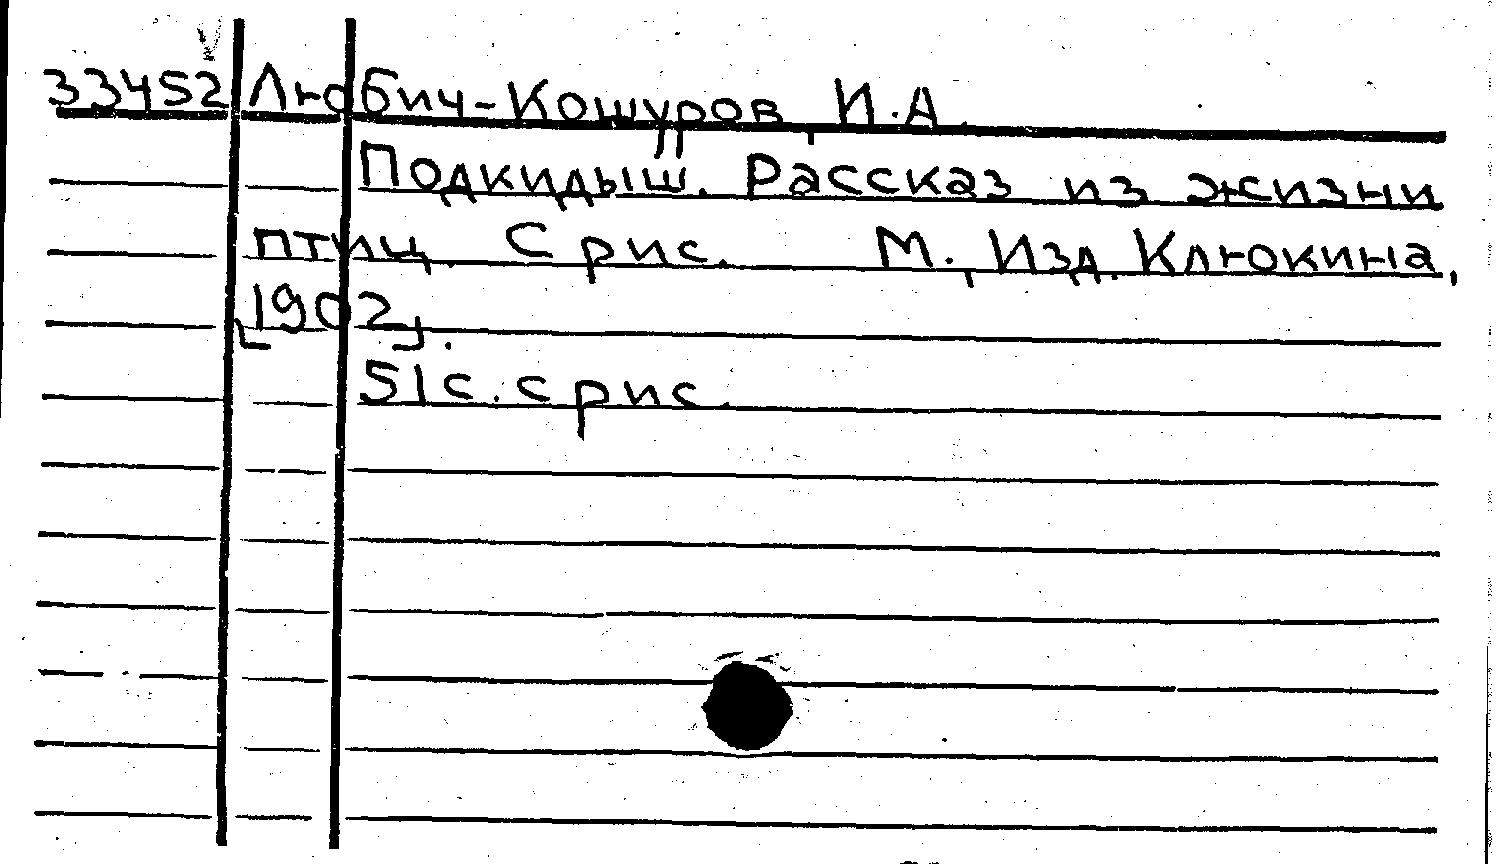 33452 Любич-Кошуров, И.А.
Подкидыш. Рассказ из жизни
птиц. С рис. М., Изд. Клюкина,
[1902].
51 с. с рис.